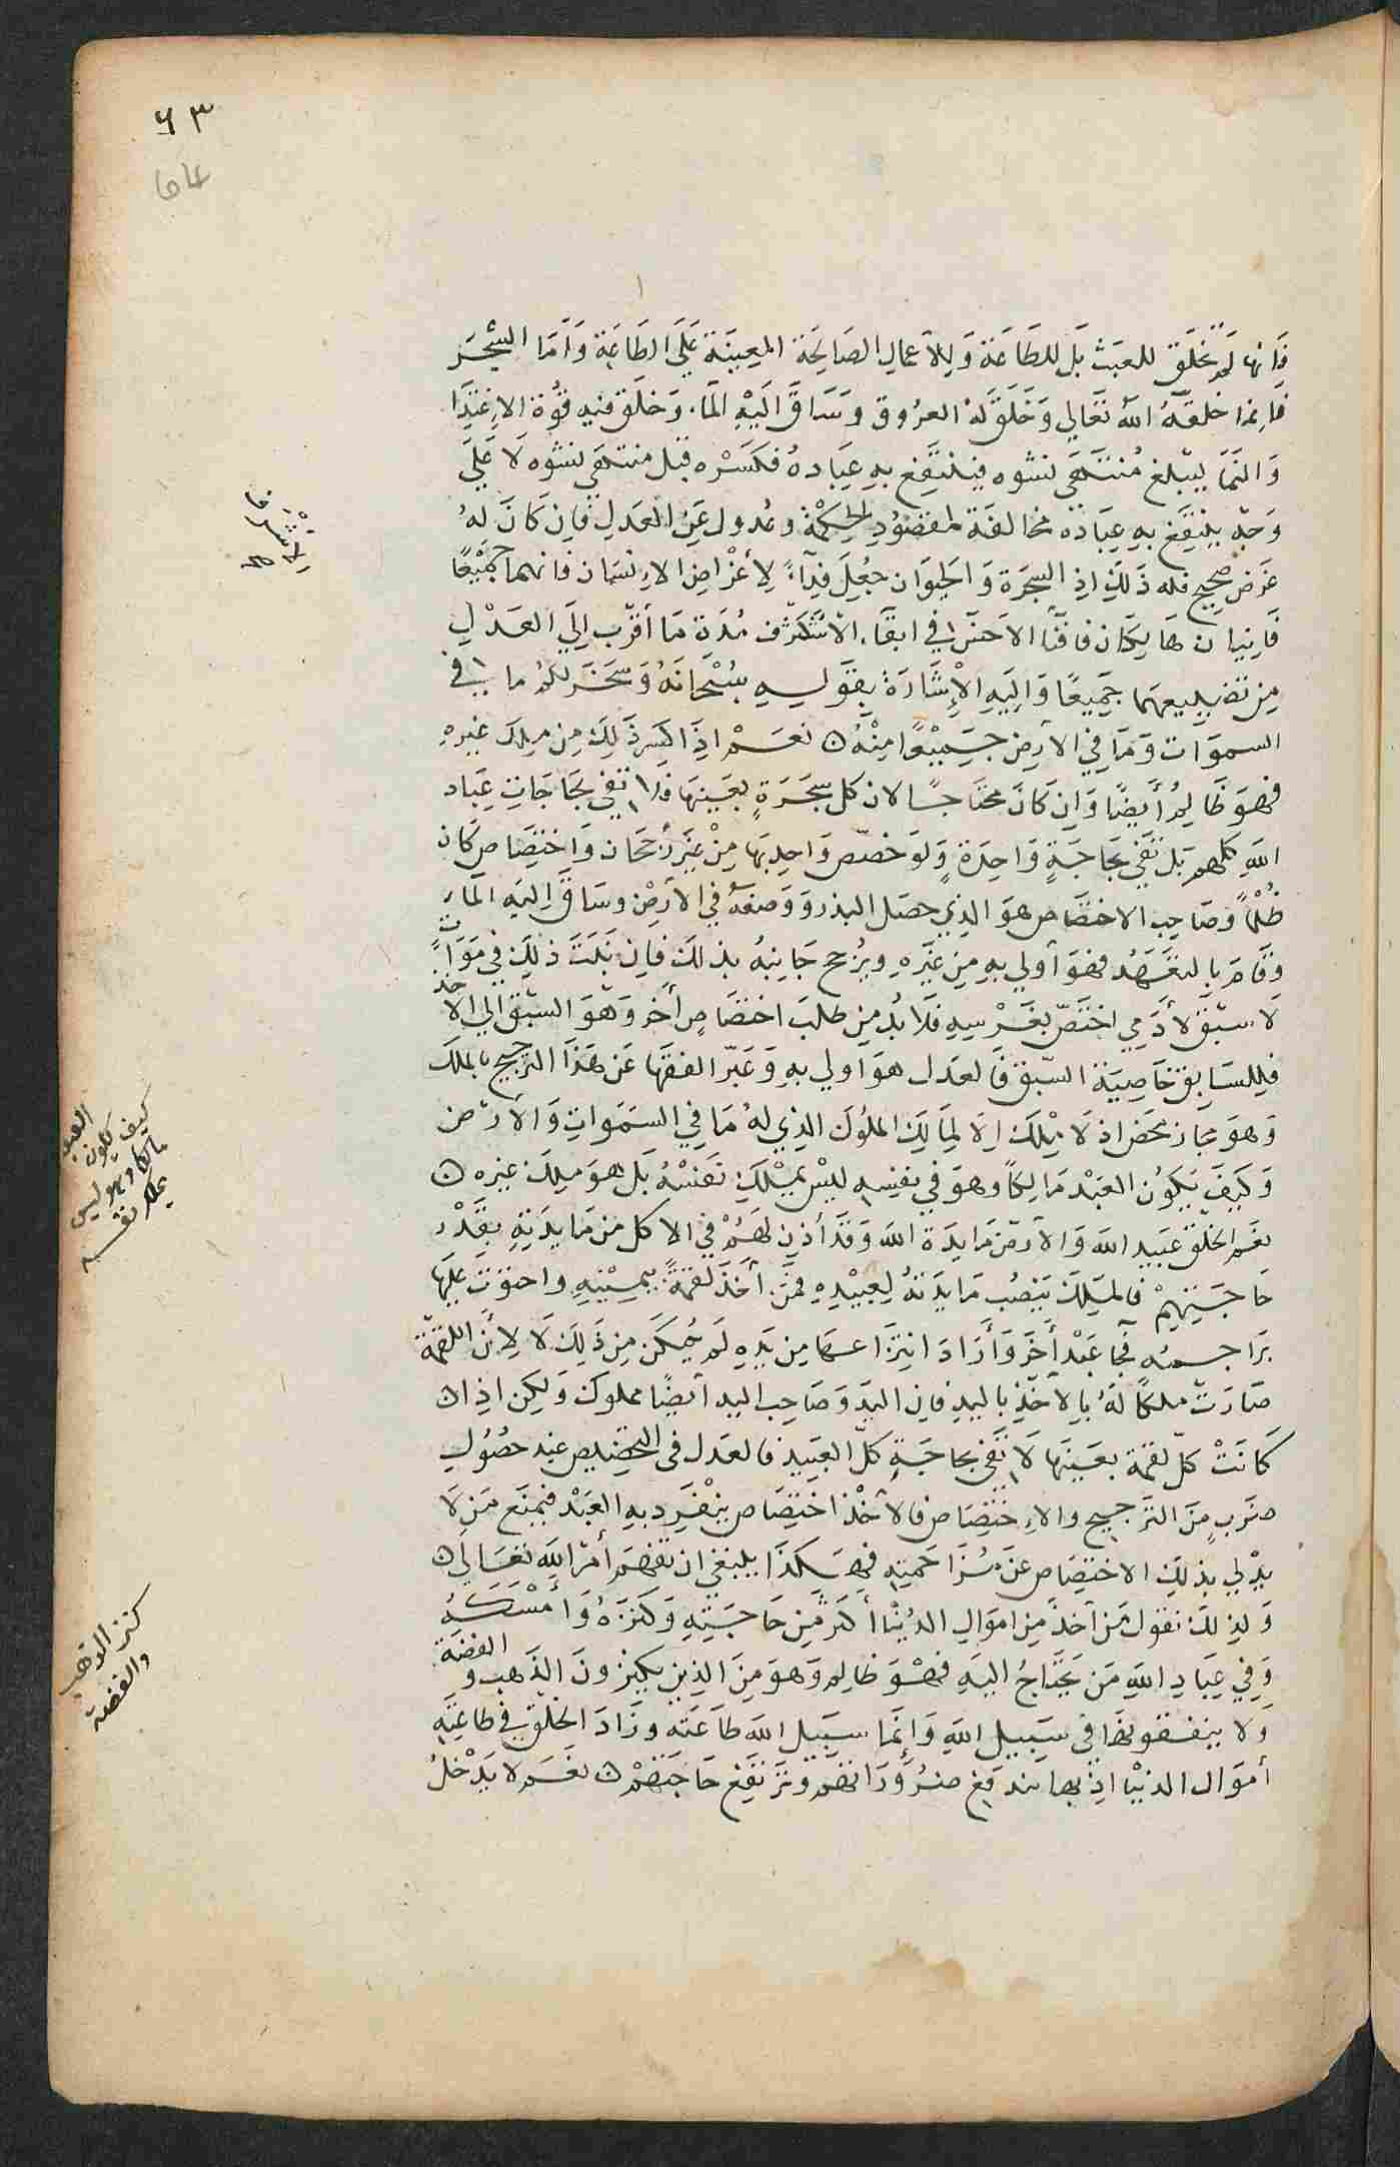 ٦٣
فانها لم تخلق للعبث بل للطاعة وللاعمال الصالحة المعينة على الطاعة واما الشجر
فانما خلقه الله تعالى وخلق له العروق وساق اليه الماء وخلق فيه قوة الاغتذا
والنما ليبلغ منتهى نشوه فينتفع به عباده فكسره قبل منتهى نشوه لا على
وجه ينتفع به عباده مخالفة لمقصود الحكمة وعدول عن العدل فان كان له
غرض صحيح فله ذلك اذ الشجرة والحيوان جعل فداء لاغراض الانسان فانهما جميعا
فانيان هالكان فافنا الاخس في ابقاء الاشرف مدة ما أقرب الى العدل
لاشرف
صح
من تضييعهما جميعا واليه الإشارة بقوله سبحانه وسخر لكم ما في
السموات وما في الارض جميعا منه ن نعم اذا كسر ذلك من ملك غيره
فهو ظالم أيضا وان كان محتاجا لان كل شجرة بعينها فلا تفي بحاجات عباد
الله كلهم بل تفي بحاجة واحدة ولو خصص واحد بها من غير رجحان واختصاص كان
ظلما وصاحب الاختصاص هو الذي حصل البذر ووضعه في الارض وساق اليه الماء
وقام بالتعهد فهو أولى به من غيره ويرجح جانبه بذلك فان نبت ذلك في موات
لا سبق لأدمي اختص بغرسه فلا بد من طلب اختصاص أخر وهو السبق الى الاخذ
فللسابق خاصية السبق فالعدل هو اولى به وعبر الفقها عن هذا الترجيح بالملك
وهو مجاز محض اذ لا يملك الا لمالك الملوك الذي له ما في السموات والارض
وكيف يكون العبد مالكا وهو في نفسه ليس يملك نفسه بل هو ملك غيره ن
كيف يكون العبد
مالكا وهو ليس
يملك نفسه
نعم الخلق عبيد الله والارض مايدة الله وقد أذن لهم في الاكل من مايدته بقدر
حاجتهم فالملك ينصب مايدته لعبيده فمن أخذ لقمة بيمينه واحتوت عليها
براجمه فجا عبد أخر وأراد انتزاعها من يده لم يمكن من ذلك لا لأن اللقمة
صارت ملكا له بالاخذ باليد فان اليد وصاحب اليد أيضا مملوك ولكن اذ ان
كانت كل لقمة بعينها لا تفي بحاجة كل العبيد فالعدل في التخصيص عند حصول
ضرب من الترجيح والاختصاص فالاخذ اختصاص ينفرد به العبد فيمنع من لا
يدلي بذلك الاختصاص عن مزاحمته فهكذا ينبغي ان تفهم أمر الله تعالى ن
ولذلك نقول من أخذ من اموال الدنيا أكثر من حاجته وكنزه وأمسكه
وفي عباد الله من يحتاج اليه فهو ظالم وهو من الذين يكنزون الذهب والفضة
كنز الذهب
والفضة
ولا ينفقونها في سبيل الله وانما سبيل الله طاعته وزاد الخلق في طاعته
أموال الدنيا اذ بها تندفع ضروراتهم وترتفع حاجتهم ن نعم لا يدخل